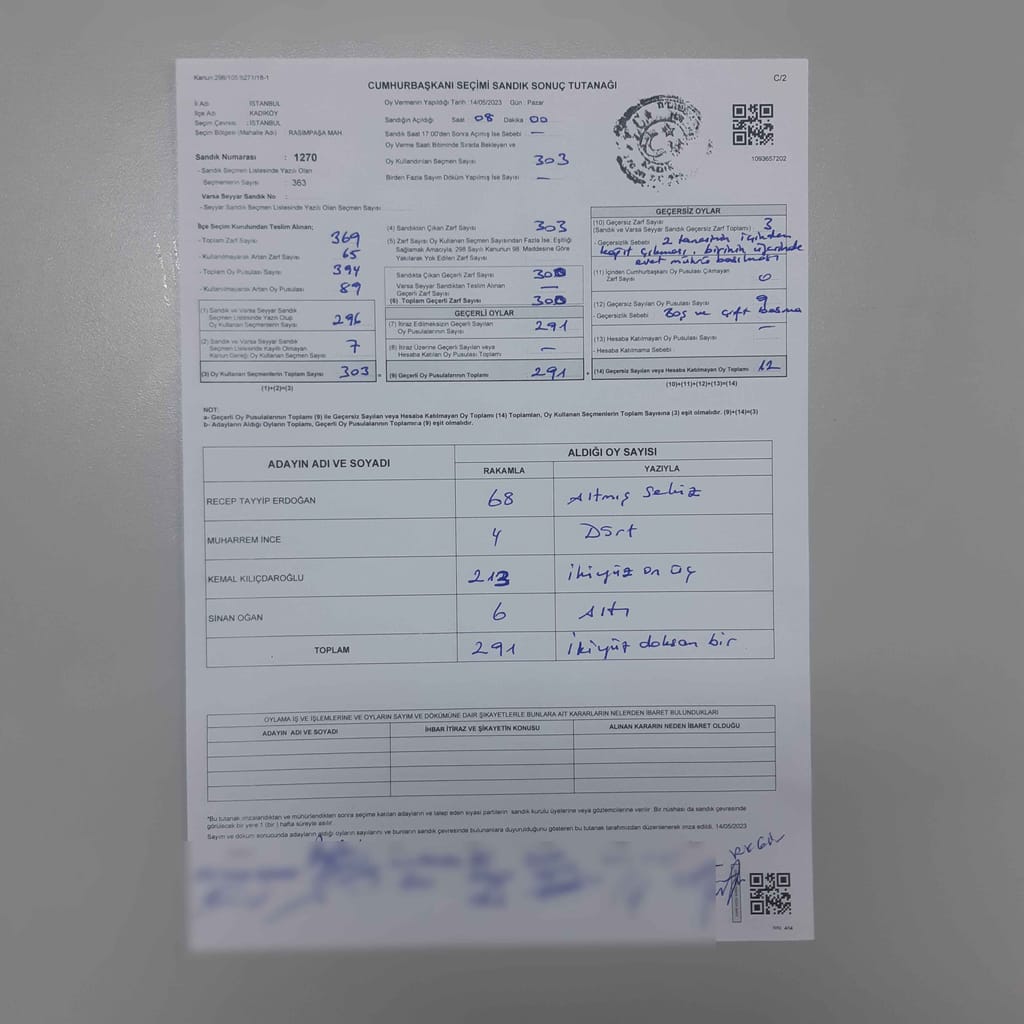 Kanun:298/105
C/2
CUMHURBAŞKANI SEÇİMİ SANDIK SONUÇ TUTANAĞI
İl Adı : İSTANBUL
İlçe Adı : KADIKÖY
Seçim Çevresi : İSTANBUL
Seçim Bölgesi (Mahalle Adı) : RASİMPAŞA MAH
Sandık Numarası : 1270
- Sandık Seçmen Listesinde Yazılı Olan
Seçmenlerin Sayısı : 363
Varsa Seyyar Sandık No :
- Seyyar Sandık Seçmen Listesinde Yazılı Olan Seçmen Sayısı
Oy Vermenin Yapıldığı Tarih :14/05/2023 Gün : Pazar
Sandığın Açıldığı Saat 08 Dakika 00
Sandık Saat 17:00'den Sonra Açılmış İse Sebebi —
Oy Verme Saati Bitiminde Sırada Bekleyen ve
Oy Kullandırılan Seçmen Sayısı 303
Birden Fazla Sayım Döküm Yapılmış İse Sayısı —
1093657202
İlçe Seçim Kurulundan Teslim Alınan;
- Toplam Zarf Sayısı 369
- Kullanılmayarak Artan Zarf Sayısı 65
- Toplam Oy Pusulası Sayısı 394
- Kullanılmayarak Artan Oy Pusulası 89
(1) Sandık ve Varsa Seyyar Sandık
Seçmen Listesinde Yazılı Olup
Oy Kullanan Seçmenlerin Sayısı 296
(2) Sandık ve Varsa Seyyar Sandık
Seçmen Listesinde Kayıtlı Olmayan
Kanun Gereği Oy Kullanan Seçmen Sayısı 7
(3) Oy Kullanan Seçmenlerin Toplam Sayısı 303
(1)+(2)=(3)
(4) Sandıktan Çıkan Zarf Sayısı 303
(5) Zarf Sayısı Oy Kullanan Seçmen Sayısından Fazla İse; Eşitliği
Sağlamak Amacıyla, 298 Sayılı Kanunun 98. Maddesine Göre
Yakılarak Yok Edilen Zarf Sayısı
Sandıkta Çıkan Geçerli Zarf Sayısı 300
Varsa Seyyar Sandıktan Teslim Alınan
Geçerli Zarf Sayısı —
(6) Toplam Geçerli Zarf Sayısı 300
GEÇERLİ OYLAR
(7) İtiraz Edilmeksizin Geçerli Sayılan
Oy Pusulalarının Sayısı 291
(8) İtiraz Üzerine Geçerli Sayılan veya
Hesaba Katılan Oy Pusulası Toplamı —
(9) Geçerli Oy Pusulalarının Toplamı 291
GEÇERSİZ OYLAR
(10) Geçersiz Zarf Sayısı 3
(Sandık ve Varsa Seyyar Sandık Geçersiz Zarf Toplamı)
- Geçersizlik Sebebi 2 tanesinin içinden
kağıt çıkması, birinin üzerinde
evet mührü basılması
(11) İçinden Cumhurbaşkanı Oy Pusulası Çıkmayan
Zarf Sayısı 0
(12) Geçersiz Sayılan Oy Pusulası Sayısı 9
- Geçersizlik Sebebi Boş ve çift basma
(13) Hesaba Katılmayan Oy Pusulası Sayısı —
- Hesaba Katılmama Sebebi
(14) Geçersiz Sayılan veya Hesaba Katılmayan Oy Toplamı 12
(10)+(11)+(12)+(13)=(14)
NOT:
a- Geçerli Oy Pusulalarının Toplamı (9) ile Geçersiz Sayılan veya Hesaba Katılmayan Oy Toplamı (14) Toplamları, Oy Kullanan Seçmenlerin Toplam Sayısına (3) eşit olmalıdır. (9)+(14)=(3)
b- Adayların Aldığı Oyların Toplamı, Geçerli Oy Pusulalarının Toplamına (9) eşit olmalıdır.
ADAYIN ADI VE SOYADI ALDIĞI OY SAYISI
RAKAMLA YAZIYLA
RECEP TAYYİP ERDOĞAN 68 Altmış sekiz
MUHARREM İNCE 4 Dört
KEMAL KILIÇDAROĞLU 213 ikiyüz on üç
SİNAN OĞAN 6 Altı
TOPLAM 291 ikiyüz doksan bir
OYLAMA İŞ VE İŞLEMLERİNE VE OYLARIN SAYIM VE DÖKÜMÜNE DAİR ŞİKAYETLERLE BUNLARA AİT KARARLARIN NELERDEN İBARET BULUNDUKLARI
ADAYIN ADI VE SOYADI İHBAR İTİRAZ VE ŞİKAYETİN KONUSU ALINAN KARARIN NEDEN İBARET OLDUĞU
*Bu tutanak imzalandıktan ve mühürlendikten sonra seçime katılan adayların ve talep eden siyasi partilerin sandık kurulu üyelerine veya gözlemcilerine verilir. Bir nüshası da sandık çevresinde
görülecek bir yere 1 (bir ) hafta süreyle asılır.
Sayım ve döküm sonucunda adayların aldığı oyların sayılarını ve bunların sandık çevresinde bulunanlara duyurulduğunu gösteren bu tutanak tarafımızdan düzenlenerek imza edildi. 14/05/2023